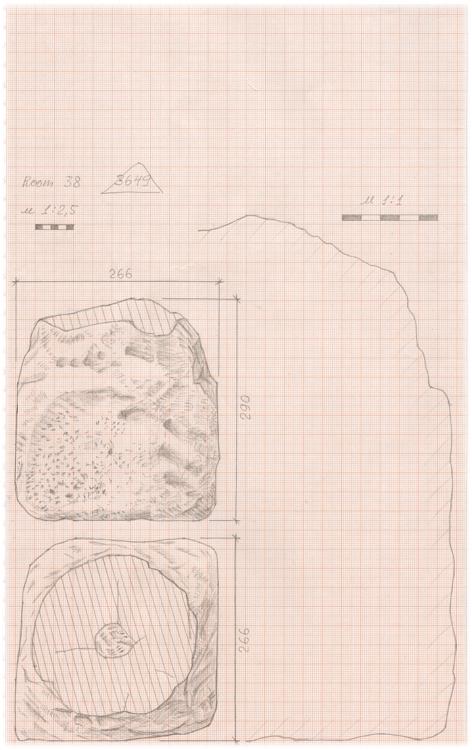 Room 38
3649
м 1:2,5
м 1:1
266
290
266